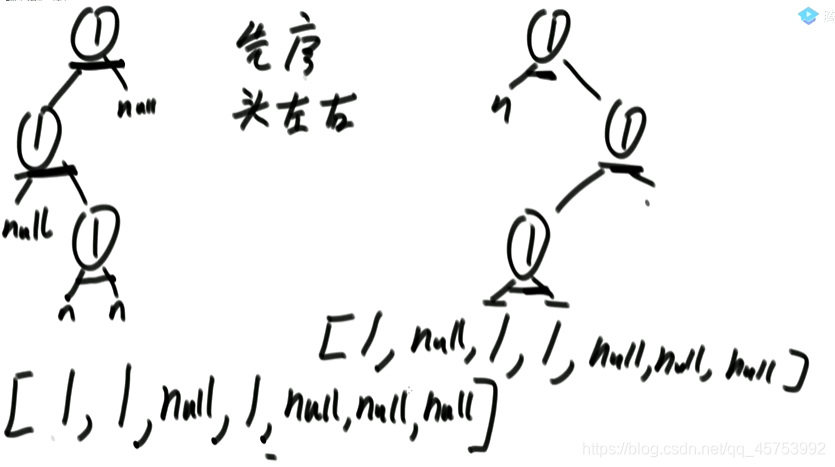 1
null
1
null
1
n n
先序
头左右
1
n
1
1
[1, null, 1, 1, null, null, null]
[1, 1, null, 1, null, null, null]
https://blog.csdn.net/qq_45753992